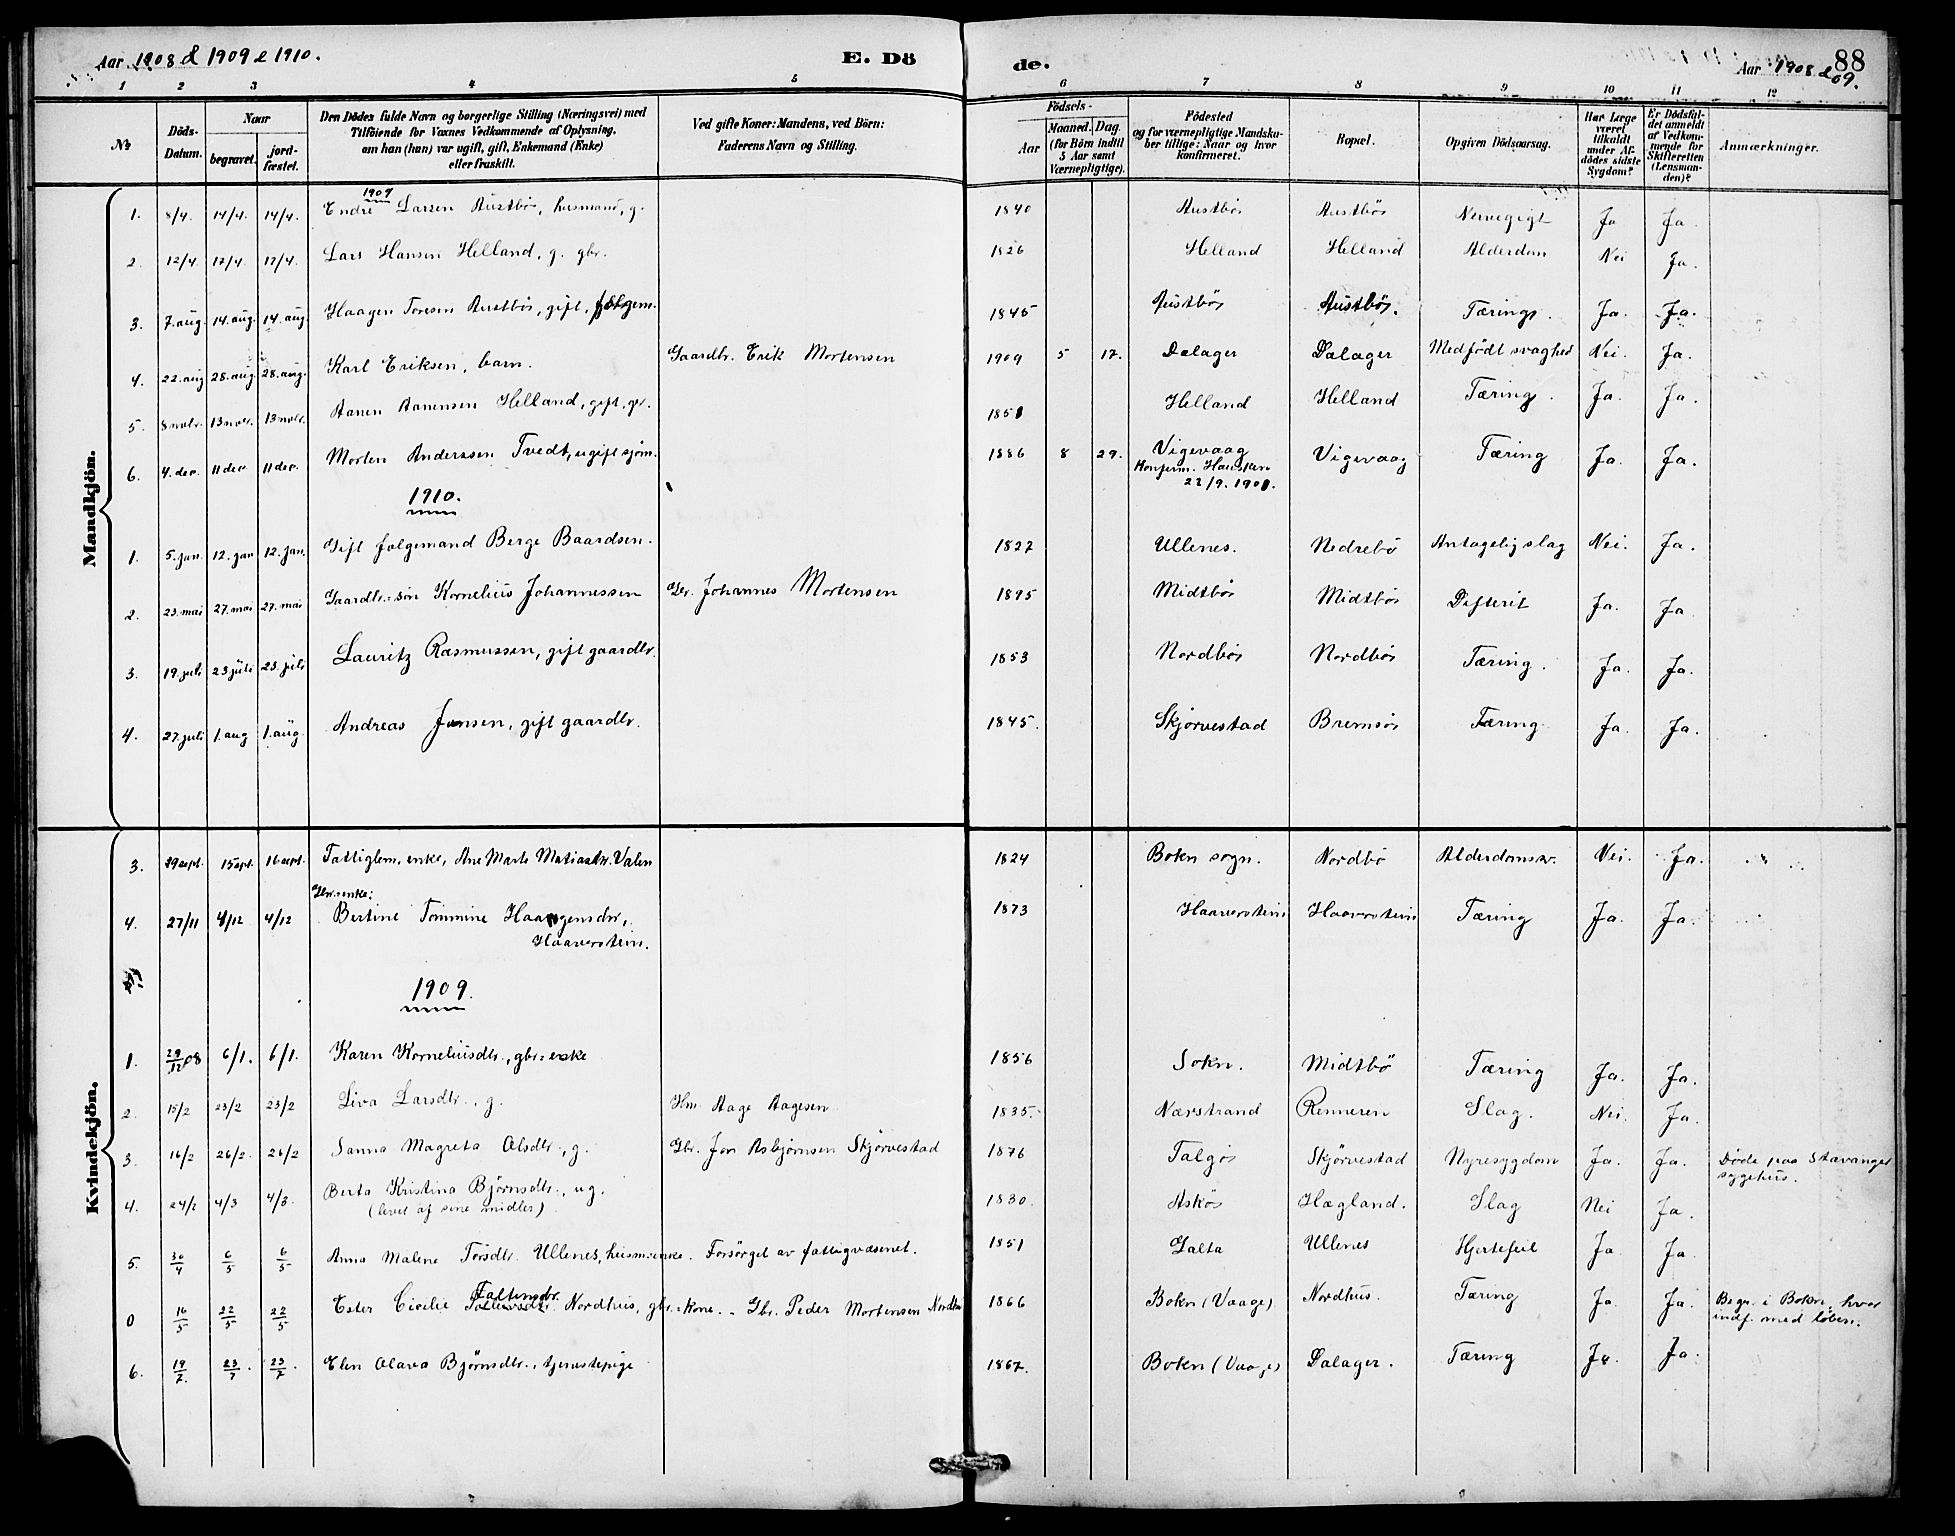 Aar 1908 & 1909 & 1910. E. Dö de. Aar 1908 & 09. 88
1 2 3 4 5 6 7 8 9 10 11 12
No Döds-Datum. Naar begravet. jordfæstet. Den Dödes fulde Navn og borgerlige Stilling (Næringsvei) med Tilföiende for Voxnes Vedkommende af Oplysning, om han (hun) var ugift, gift, Enkemand (Enke) eller fraskilt. Ved gifte Koner: Mandens, ved Börn: Faderens Navn og Stilling. Födsels- Aar Maaned. Dag. (for Börn indtil 5 Aar samt Værnepligtige). Födested og for værnepligtige Mandskaber tillige: Naar og hvor konfirmeret. Bopæl. Opgiven Dödsaarsag. Har Læge været tilkaldt under Afdödes sidste Sygdom? Er Dödsfaldet anmeldt af Vedkommende for Skifteretten (Lensmanden)? Anmærkninger.
Mandkjön.
1909
1. 8/4 14/4 14/4 Endre Larsen Austbø, husmand, g. 1840 Austbø Austbø Nervegigt Ja Ja.
2. 12/4 17/4 17/4 Lars Hansen Helland, g. gbr. 1826 Helland Helland Alderdom Nei Ja.
3. 7. aug. 14. aug. 14. aug. Haagen Toresen Austbø, gift, folgem. 1845 Austbø Austbø. Tæring. Ja. Ja.
4. 22. aug 28. aug. 28. aug. Karl Eriksen, barn. Gaardbr. Erik Mortensen 1909 5 17. Dalager Dalager Medfødt svaghed Nei. Ja.
5. 8 nobr. 13 nobr. 13 nobr. Aanen Aanensen Helland, gift, gbr. 1851 Helland Helland Tæring. Ja. Ja.
6. 4. der. 11 der 11 der. Morten Anderssen Tvedt, ugift sjøm. 1886 8 29. Vigevaag Konferm. Hausken 22/9. 1901. Vigevaag Tæring Ja. Ja.
1910.
1. 5. jan. 12. jan 12. jan. Gift folgemand Berge Baardsen. 1827 Ullenes. Nedrebö Antagelig slag Nei. Ja.
2. 23. mai 27. mai 27. mai Gaardbr.=søn Kornelius Johannessen Gbr. Johannes Mortensen 1895 Midtbø Midtbø Difterit Ja. Ja.
3. 19. juli 23 juli 23. juli Lauritz Rasmussen, gift gaardbr. 1853 Nordbø Nordbø Tæring. Ja. Ja.
4. 27. juli 1. aug 1. aug Andreas Jansen, gift gaardbr. 1845. Skjørvestad Bremsø Tæring Ja. Ja.
Kvindekjön.
3. 29 sept. 15 sept. 16 sept. Fattiglem, enke, Ane Marte Matiasdtr. Valen 1824 Bokn sogn. Nordbö Alderdomssv. Nei. Ja.
Gbr. enke:
4. 27/11 4/12 4/12 Bertine Tommine Haagensdtr., Haaverstein. 1873 Haaverstein Haaverstein Tæring Ja. Ja.
1909.
1. 29/12 08 6/1. 6/1. Karen Korneliusdtr., gbr=enke 1856 Sokn. Midtbö Tæring Ja. Ja.
2. 15/2 23/2 23/2 Liva Larsdtr., g. Hm. Aage Aagesen 1835. Nærstrand Renneren Slag. Nei. Ja.
3. 16/2 26/2 26/2 Sanna Magreta Olsdtr., g. Gbr. Jon Asbjørnsen Skjørvestad 1876 Talgø Skjørvestad Nyresygdom Ja. Ja. Døde paa Stavanger sygehus.
4. 24/2 4/3 4/3. Berta Kristina Bjørnsdtr., ug. (levet af sine midler) 1830. Askø Hægland. Slag Nei Ja.
5. 30/4 6/5 6/5 Anna Malene Torsdtr. Ullenes, husm=enke. Forsørget av fattigvæsenet. 1851 Galta Ullenes Hjertefeil Ja Ja.
0 16/5 22/5 22/5 Ester Cicilie Faltinsdtr. Nordhus, gbr.=kone. - Gbr. Peder Mortensen 1866 Bokn (Vaage) Nordhus. Tæring Ja. Ja. Begr. i Bokn, hvor indf. med løbenr.
6. 19/7. 23/7. 23/7 Elen Olava Bjørnsdtr., tjenestepige 1867. Bokn (Vaage) Dalager. Tæring Ja. Ja.